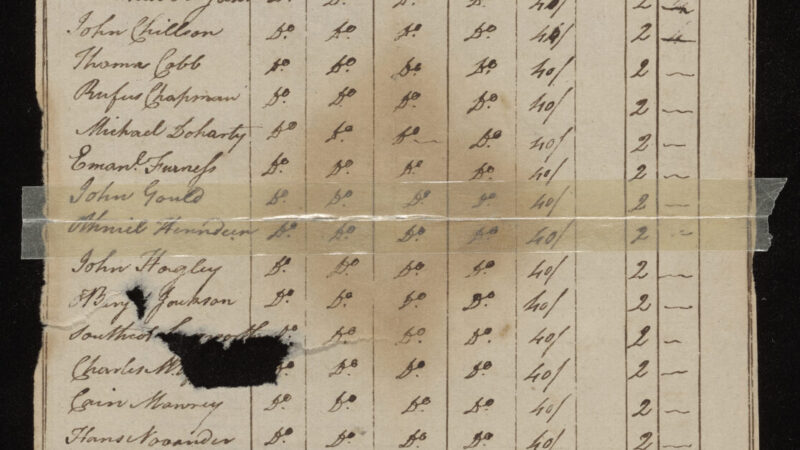 John Chillson Do. Do. Do. Do. 40/ 2
Thomas Cobb Do. Do. Do. Do. 40/ 2 —
Rufus Chapman Do. Do. Do. Do. 40/ 2 —
Michael Doharty Do Do. Do Do. 40/ 2 —
Emanl. Furness Do. Do. Do. Do. 40/ 2 —
John Gould Do. Do. Do. Do. 40/ 2 —
Do. Do. Do. Do. 40/ 2 —
John Hagley Do. Do. Do. Do. 40/ 2 —
Jackson Do. Do. Do. Do. 40/ 2 —
Do. Do. Do. Do. 40/ 2 —
Charles Do. Do. Do. Do. 40/ 2 —
Cain Mawney Do. Do. Do. Do. 40/ 2 —
Hans Novander Do. Do. Do. Do. 40/ 2 —